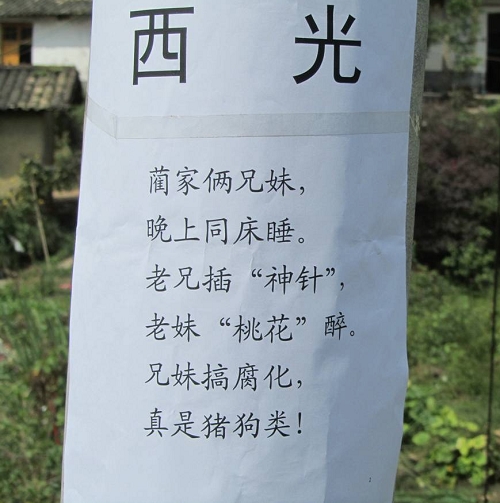 西 光
蔺家俩兄妹，
晚上同床睡。
老兄插“神针”，
老妹“桃花”醉。
兄妹搞腐化，
真是猪狗类！